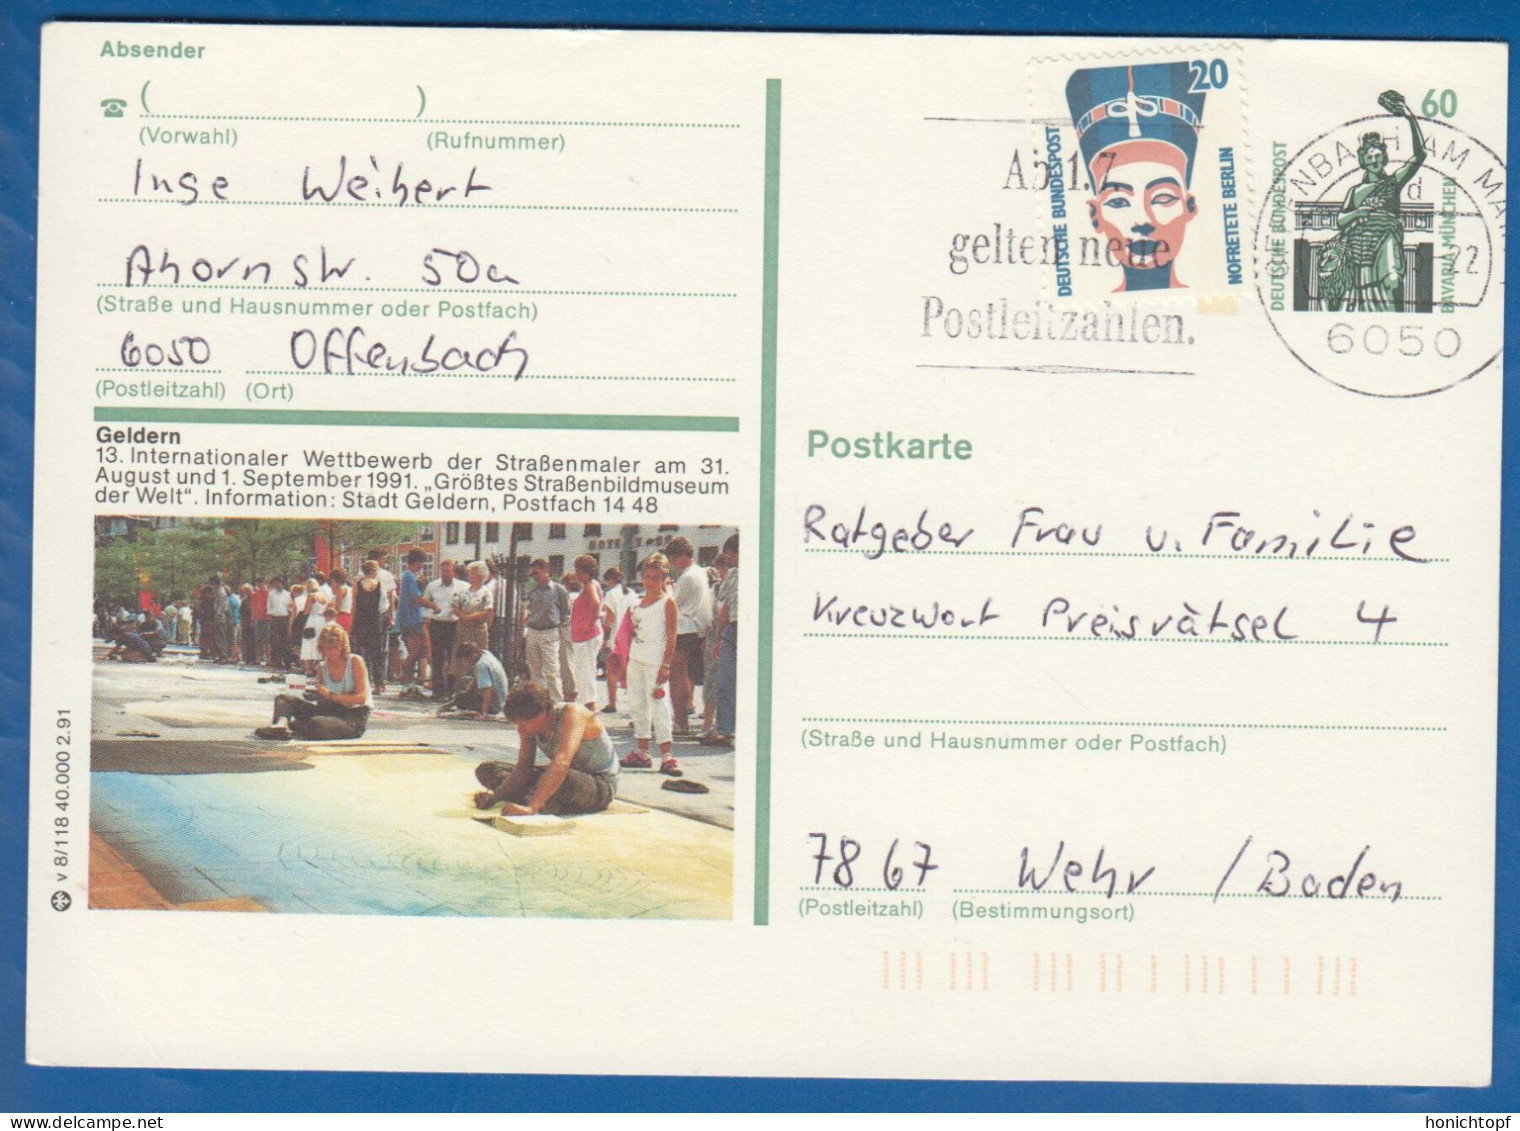 Absender
( )
(Vorwahl) (Rufnummer)
Inge Weihert
Ahornstr. 50a
(Straße und Hausnummer oder Postfach)
6050 Offenbach
(Postleitzahl) (Ort)
Geldern
13. Internationaler Wettbewerb der Straßenmaler am 31.
August und 1. September 1991. „Größtes Straßenbildmuseum
der Welt“. Information: Stadt Geldern, Postfach 14 48
v 8/118 40.000 2.91
Ab 1.7.
gelten neue
Postleitzahlen.
20
DEUTSCHE BUNDESPOST
NOFRETETE BERLIN
60
DEUTSCHE BUNDESPOST
BAVARIA MÜNCHEN
d
22
6050
Postkarte
Ratgeber Frau u. Familie
Kreuzwort Preisrätsel 4
(Straße und Hausnummer oder Postfach)
7867 Wehr / Baden
(Postleitzahl) (Bestimmungsort)
honichtopf